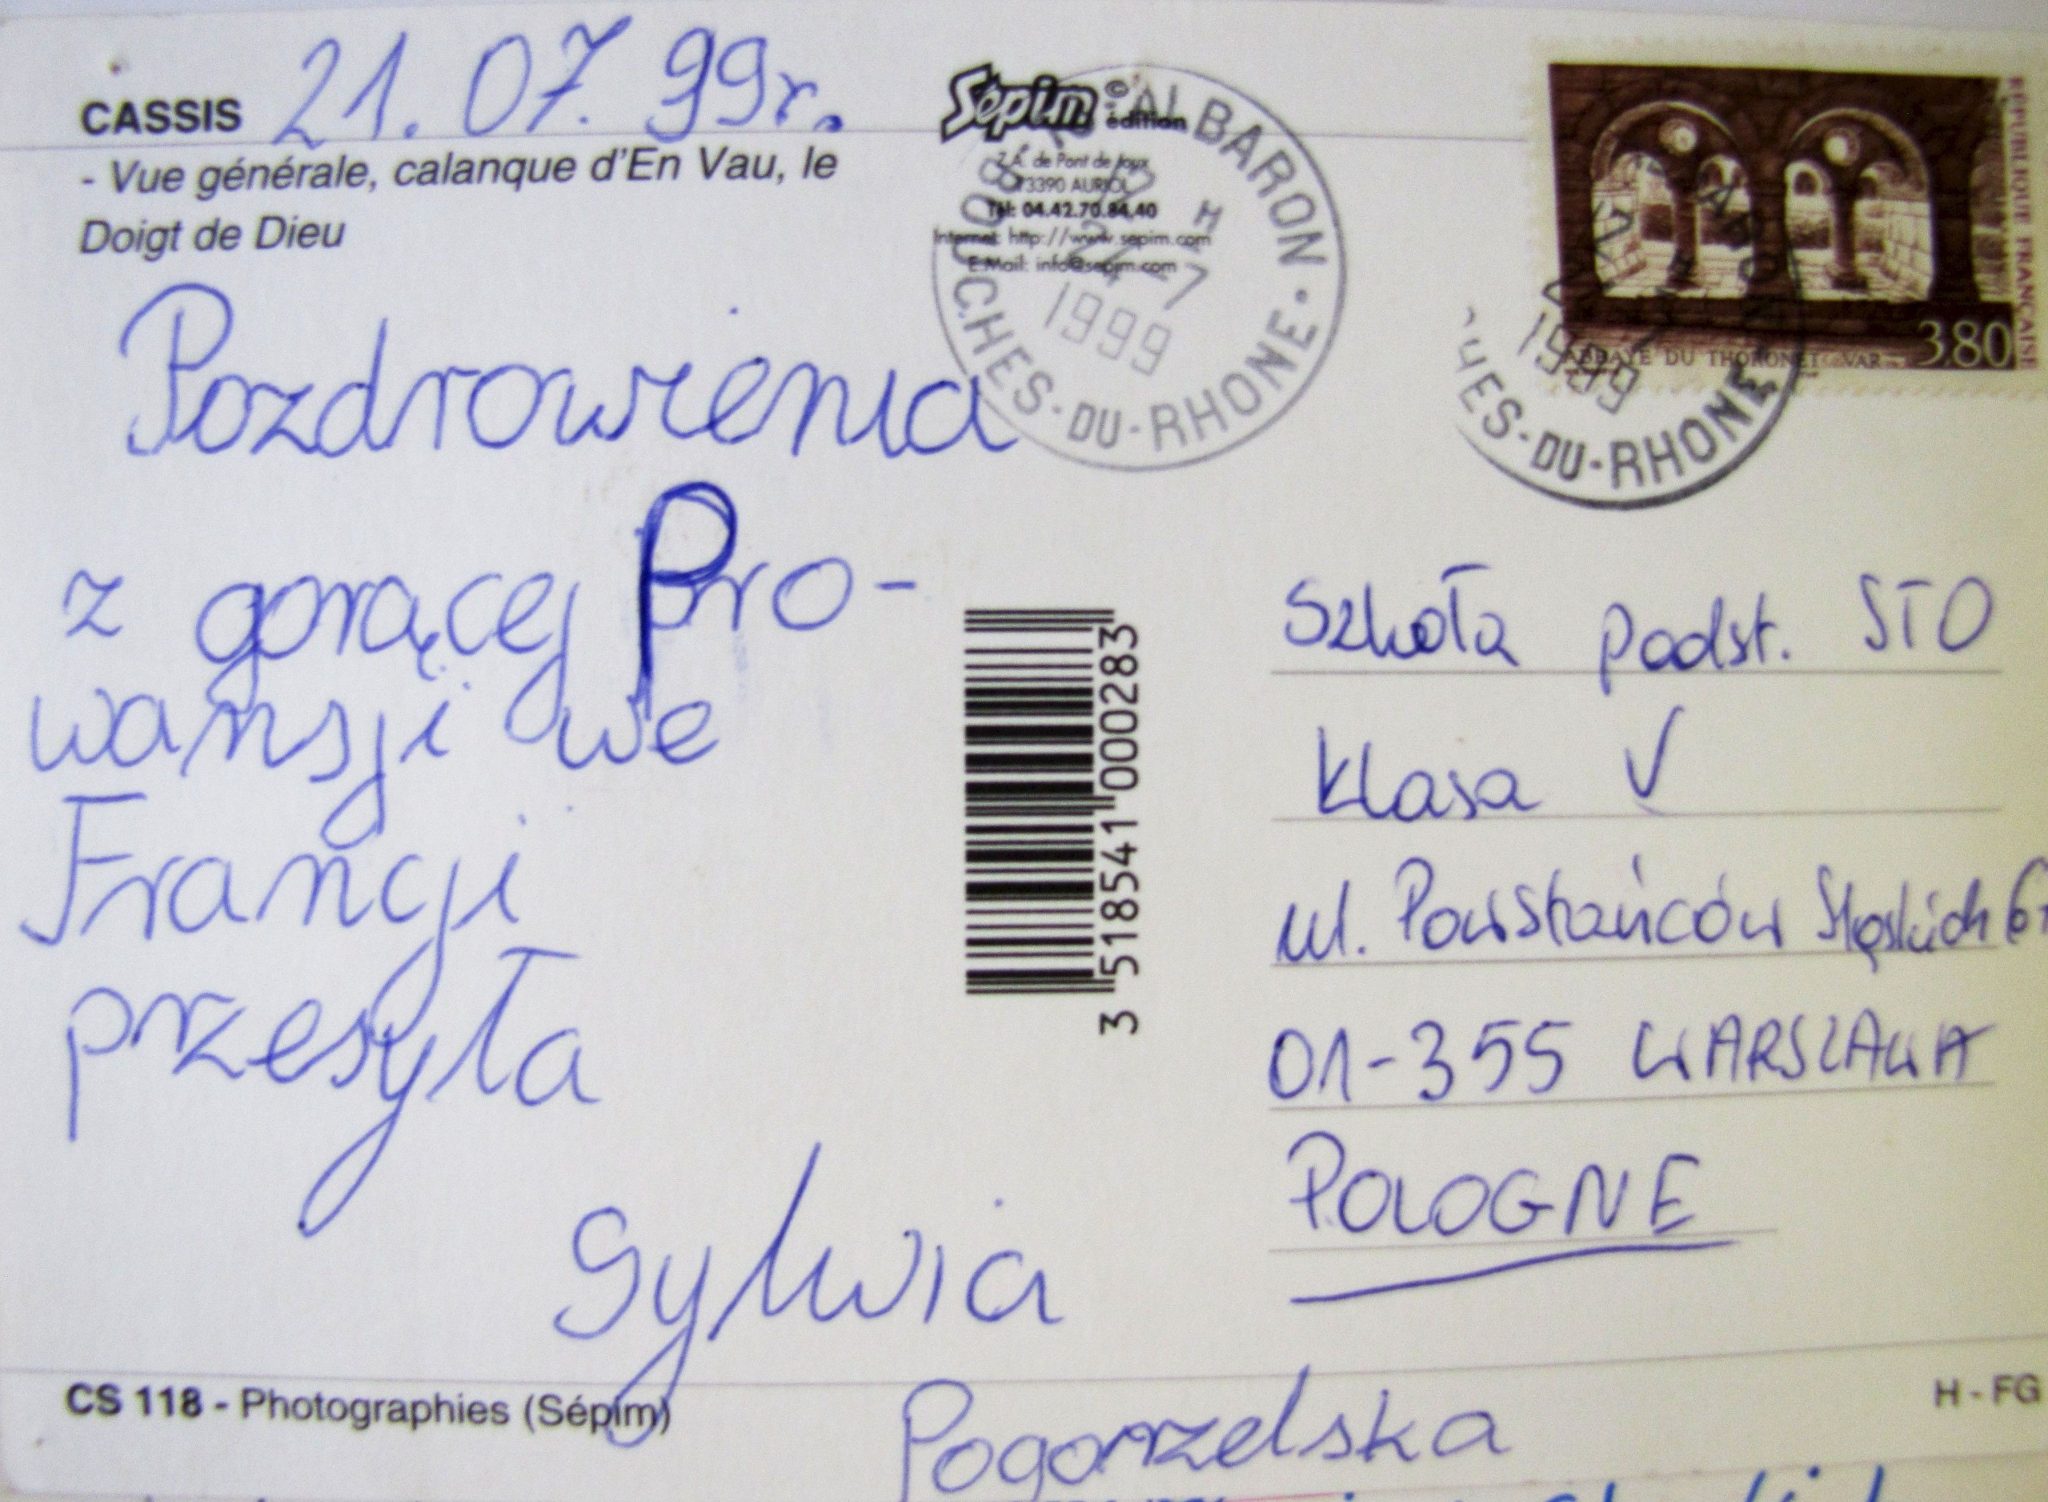 CASSIS 21.07.99r.
- Vue générale, calanque d'En Vau, le
Doigt de Dieu
Pozdrowienia
z gorącej Pro-
wansji we
Francji
przesyła
Sylwia
Pogorzelska
CS 118 - Photographies (Sépim)
Sépim édition
Z.A. de Pont de Joux
13390 AURIOL
Tél: 04.42.70.84.40
Internet: http://www.sepim.com
E.Mail: info@sepim.com
ALBARON
13 H
24-7
1999
BOUCHES-DU-RHONE
3 518541 000283
RÉPUBLIQUE FRANÇAISE
3,80
ABBAYE DU THORONET VAR
1999
HES-DU-RHONE
Szkoła podst. STO
Klasa V
ul. Powstańców Śląskich
01-355 WARSZAWA
POLOGNE
H - FG